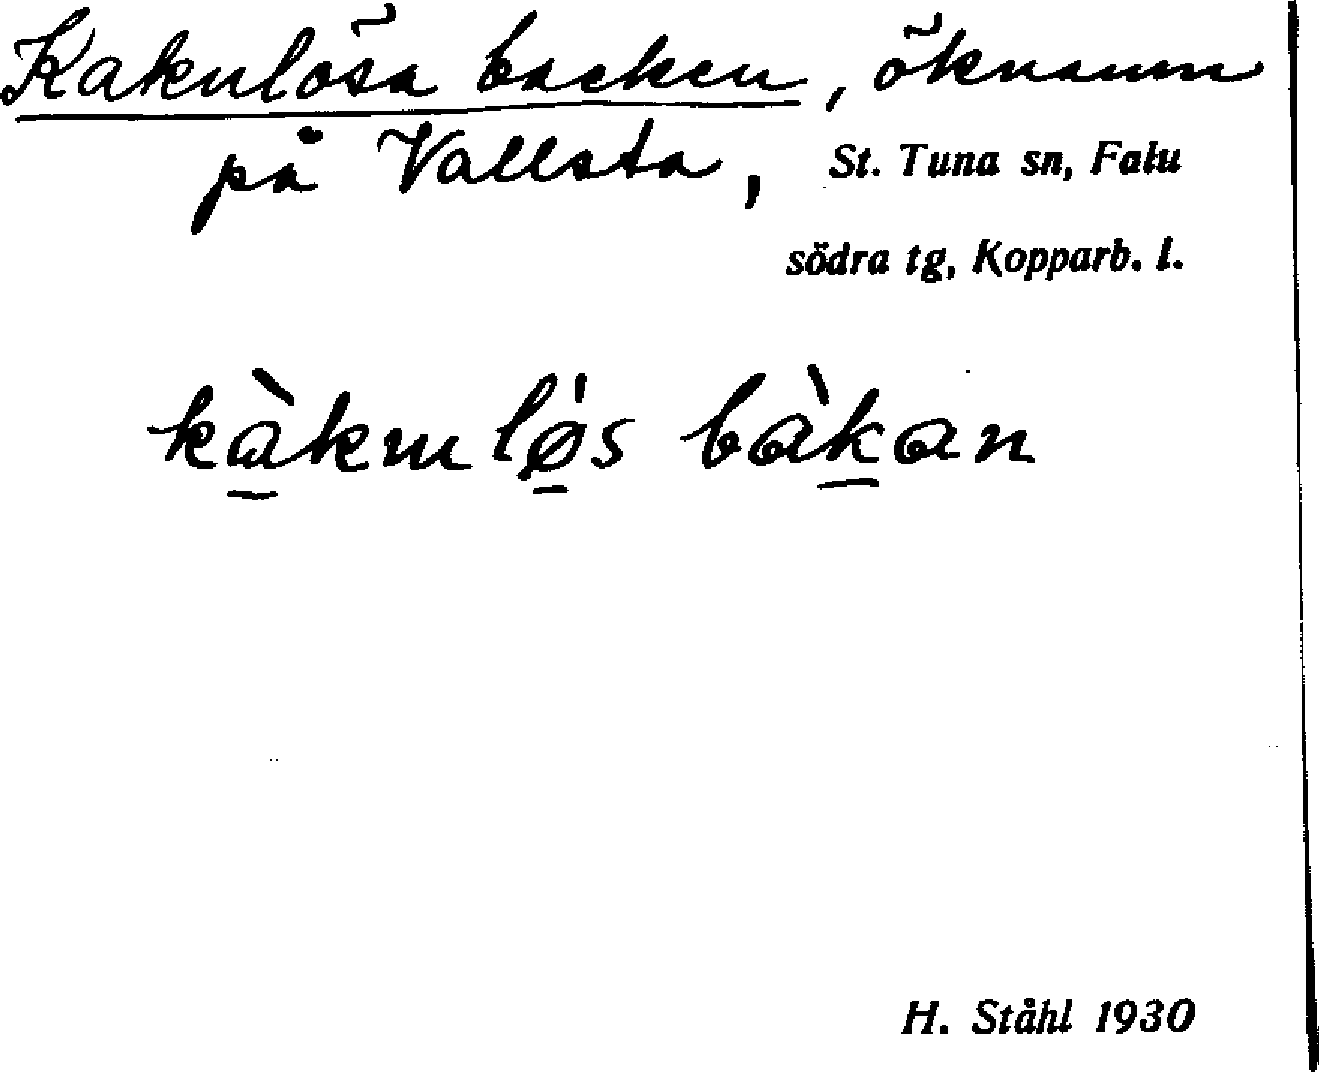 Kakulösa backen, öknamn
på Vallsta, St. Tuna sn, Falu
södra tg, Kopparb. l.
kàkuløs bàkan
H. Ståhl 1930